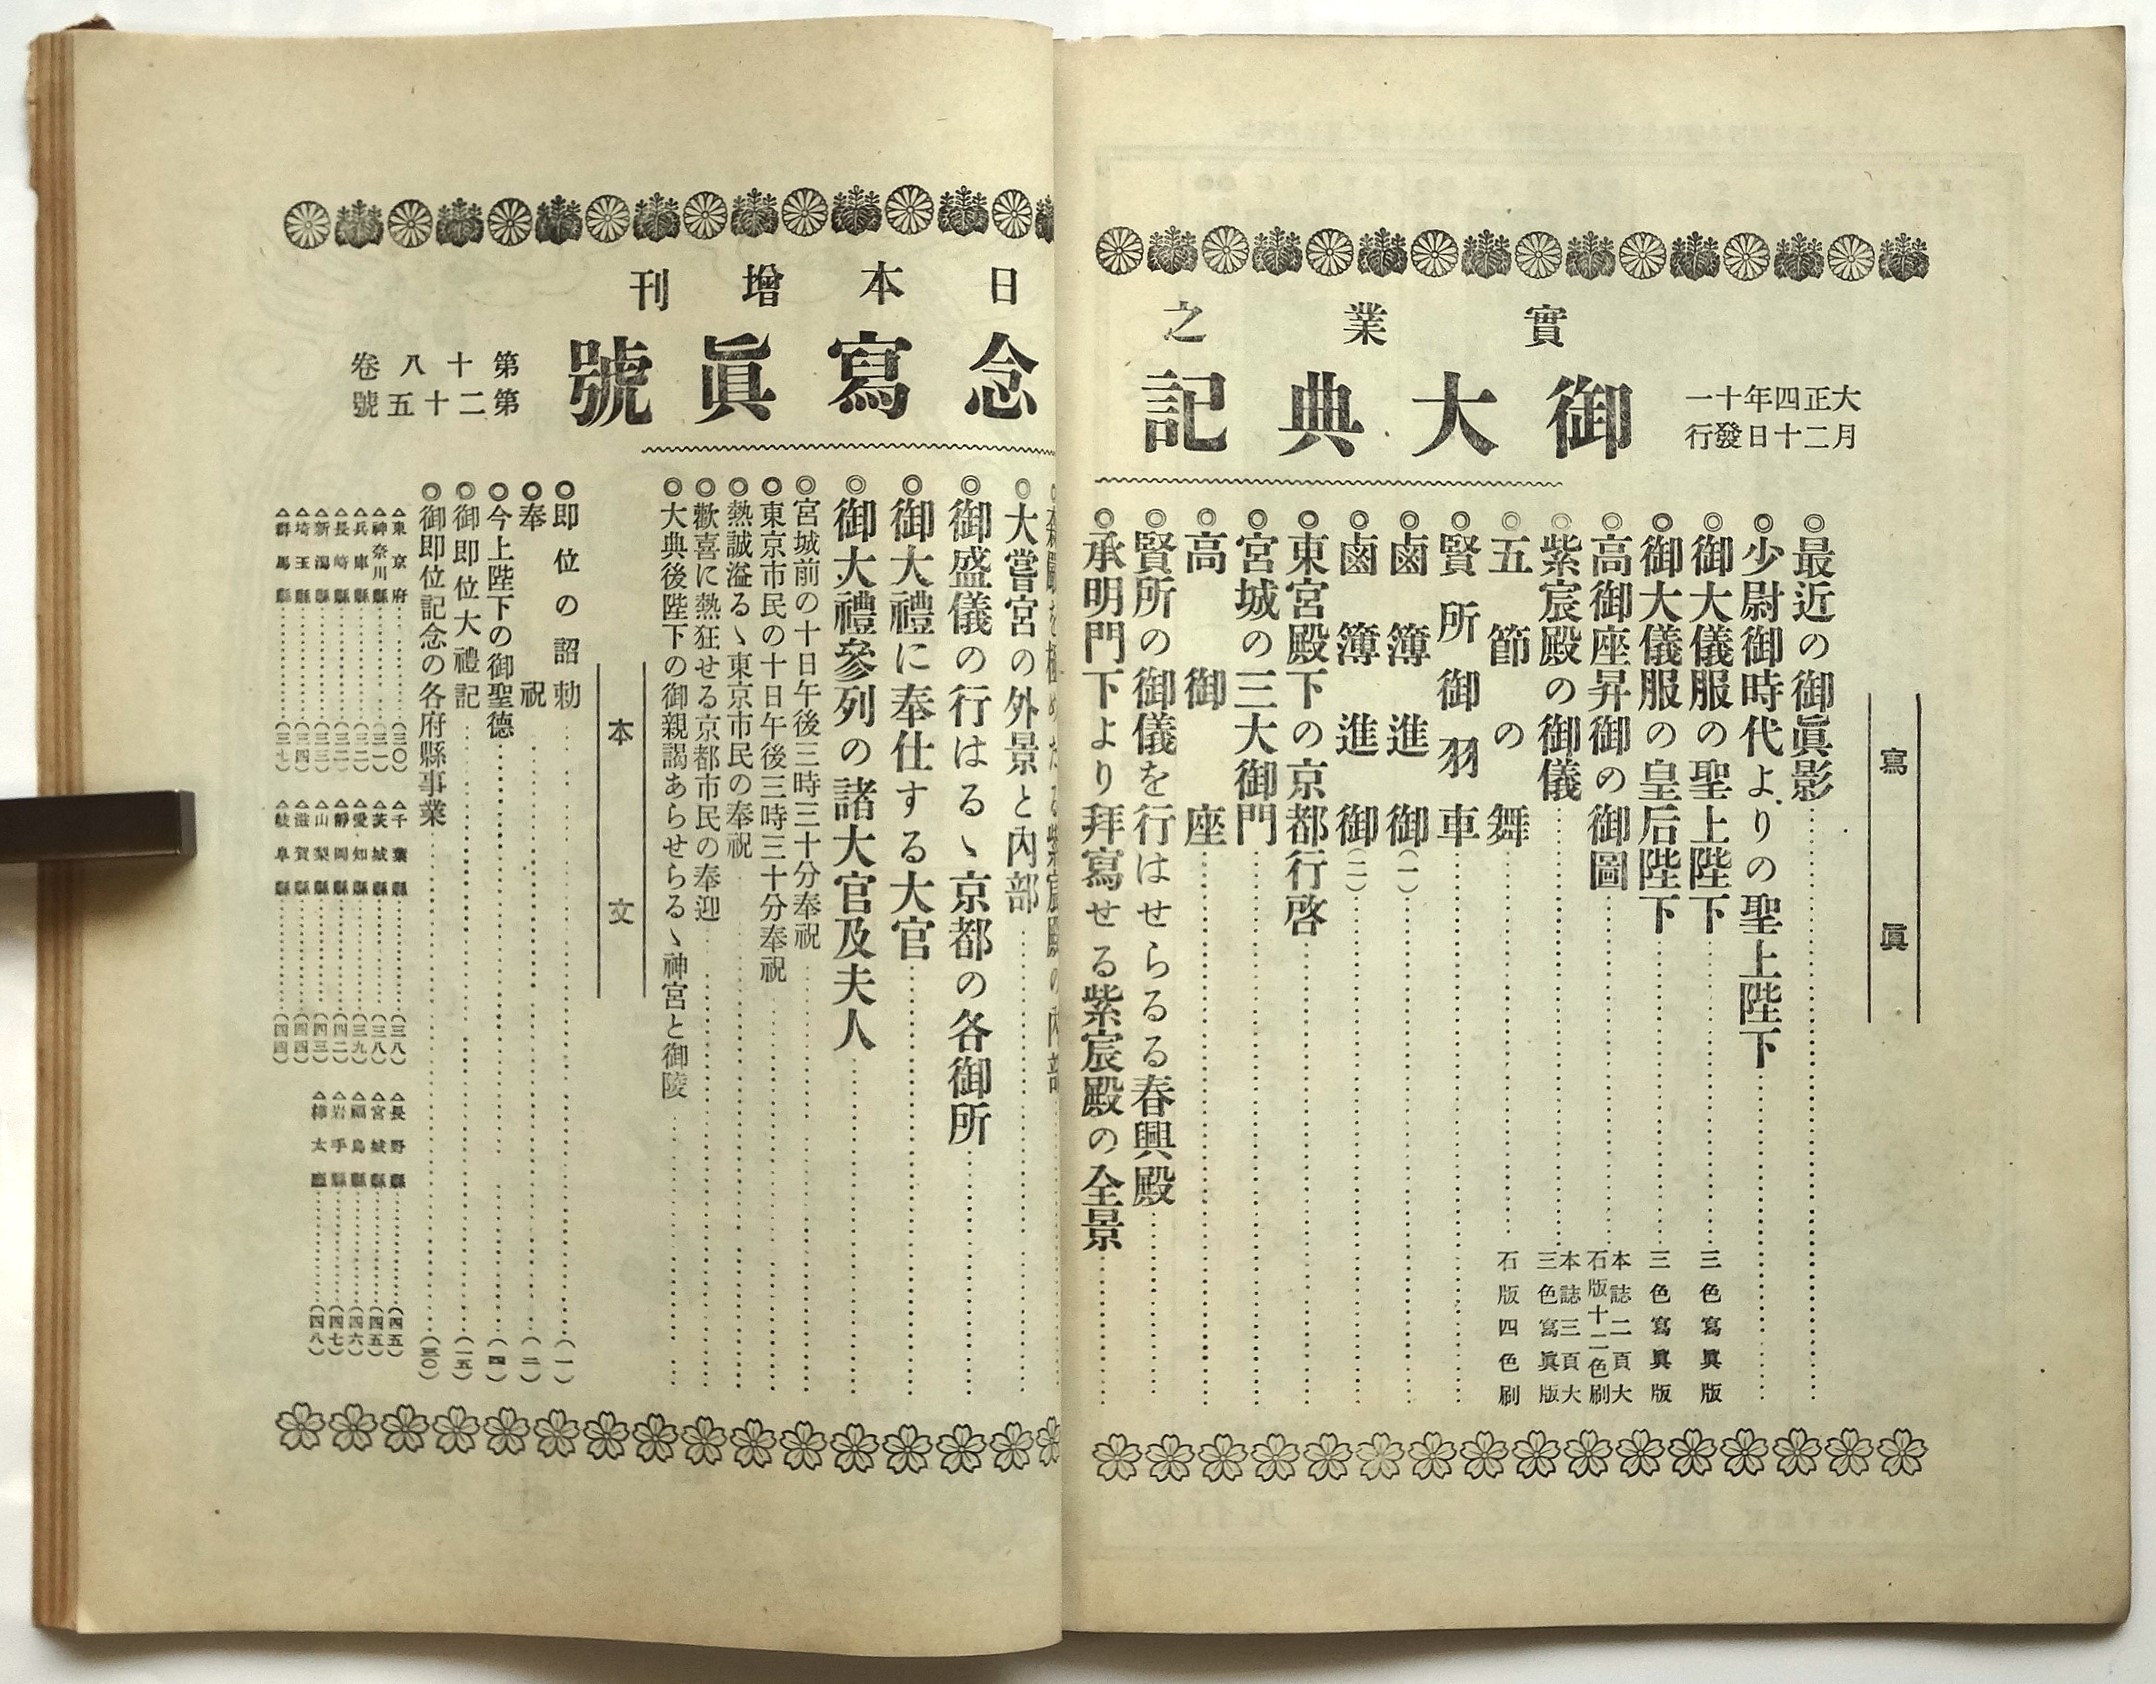 大正四年十一
月二十日發行
實業之日本增刊
御大典記念寫眞號
第十八卷
第二十五號
寫眞
◎最近の御眞影
◎少尉御時代よりの聖上陛下
◎御大儀服の聖上陛下 三色寫眞版
◎御大儀服の皇后陛下 三色寫眞版
◎高御座昇御の御圖 本誌二頁大 石版十二色刷
◎紫宸殿の御儀 本誌三頁大 三色寫眞版
◎五節の舞 石版四色刷
◎賢所御羽車
◎鹵簿進御(一)
◎鹵簿進御(二)
◎東宮殿下の京都行啓
◎宮城の三大御門
◎高御座
◎賢所の御儀を行はせらるる春興殿
◎承明門下より拜寫せる紫宸殿の全景
紫宸殿の內部
◎大嘗宮の外景と內部
◎御盛儀の行はるゝ京都の各御所
◎御大禮に奉仕する大官
◎御大禮參列の諸大官及夫人
◎宮城前の十日午後三時三十分奉祝
◎東京市民の十日午後三時三十分奉祝
◎熱誠溢るゝ東京市民の奉祝
◎歡喜に熱狂せる京都市民の奉迎
◎大典後陛下の御親謁あらせらるゝ神宮と御陵
本文
◎即位の詔勅(一)
◎奉祝(二)
◎今上陛下の御聖德(四)
◎御即位大禮記(一五)
◎御即位記念の各府縣事業(三〇)
△東京府(三〇)
△神奈川縣(三一)
△兵庫縣(三二)
△長崎縣(三二)
△新潟縣(三三)
△埼玉縣(三四)
△群馬縣(三七)
△千葉縣(三八)
△茨城縣(三八)
△愛知縣(三九)
△靜岡縣(四二)
△山梨縣(四三)
△滋賀縣(四四)
△岐阜縣(四四)
△長野縣(四五)
△宮城縣(四五)
△福島縣(四六)
△岩手縣(四七)
△樺太廳(四八)